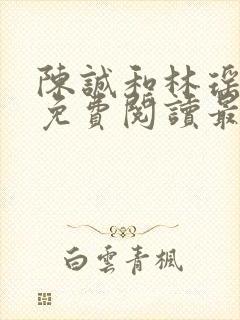 陳誠和林瑤
免費閱讀最
白雲青楓